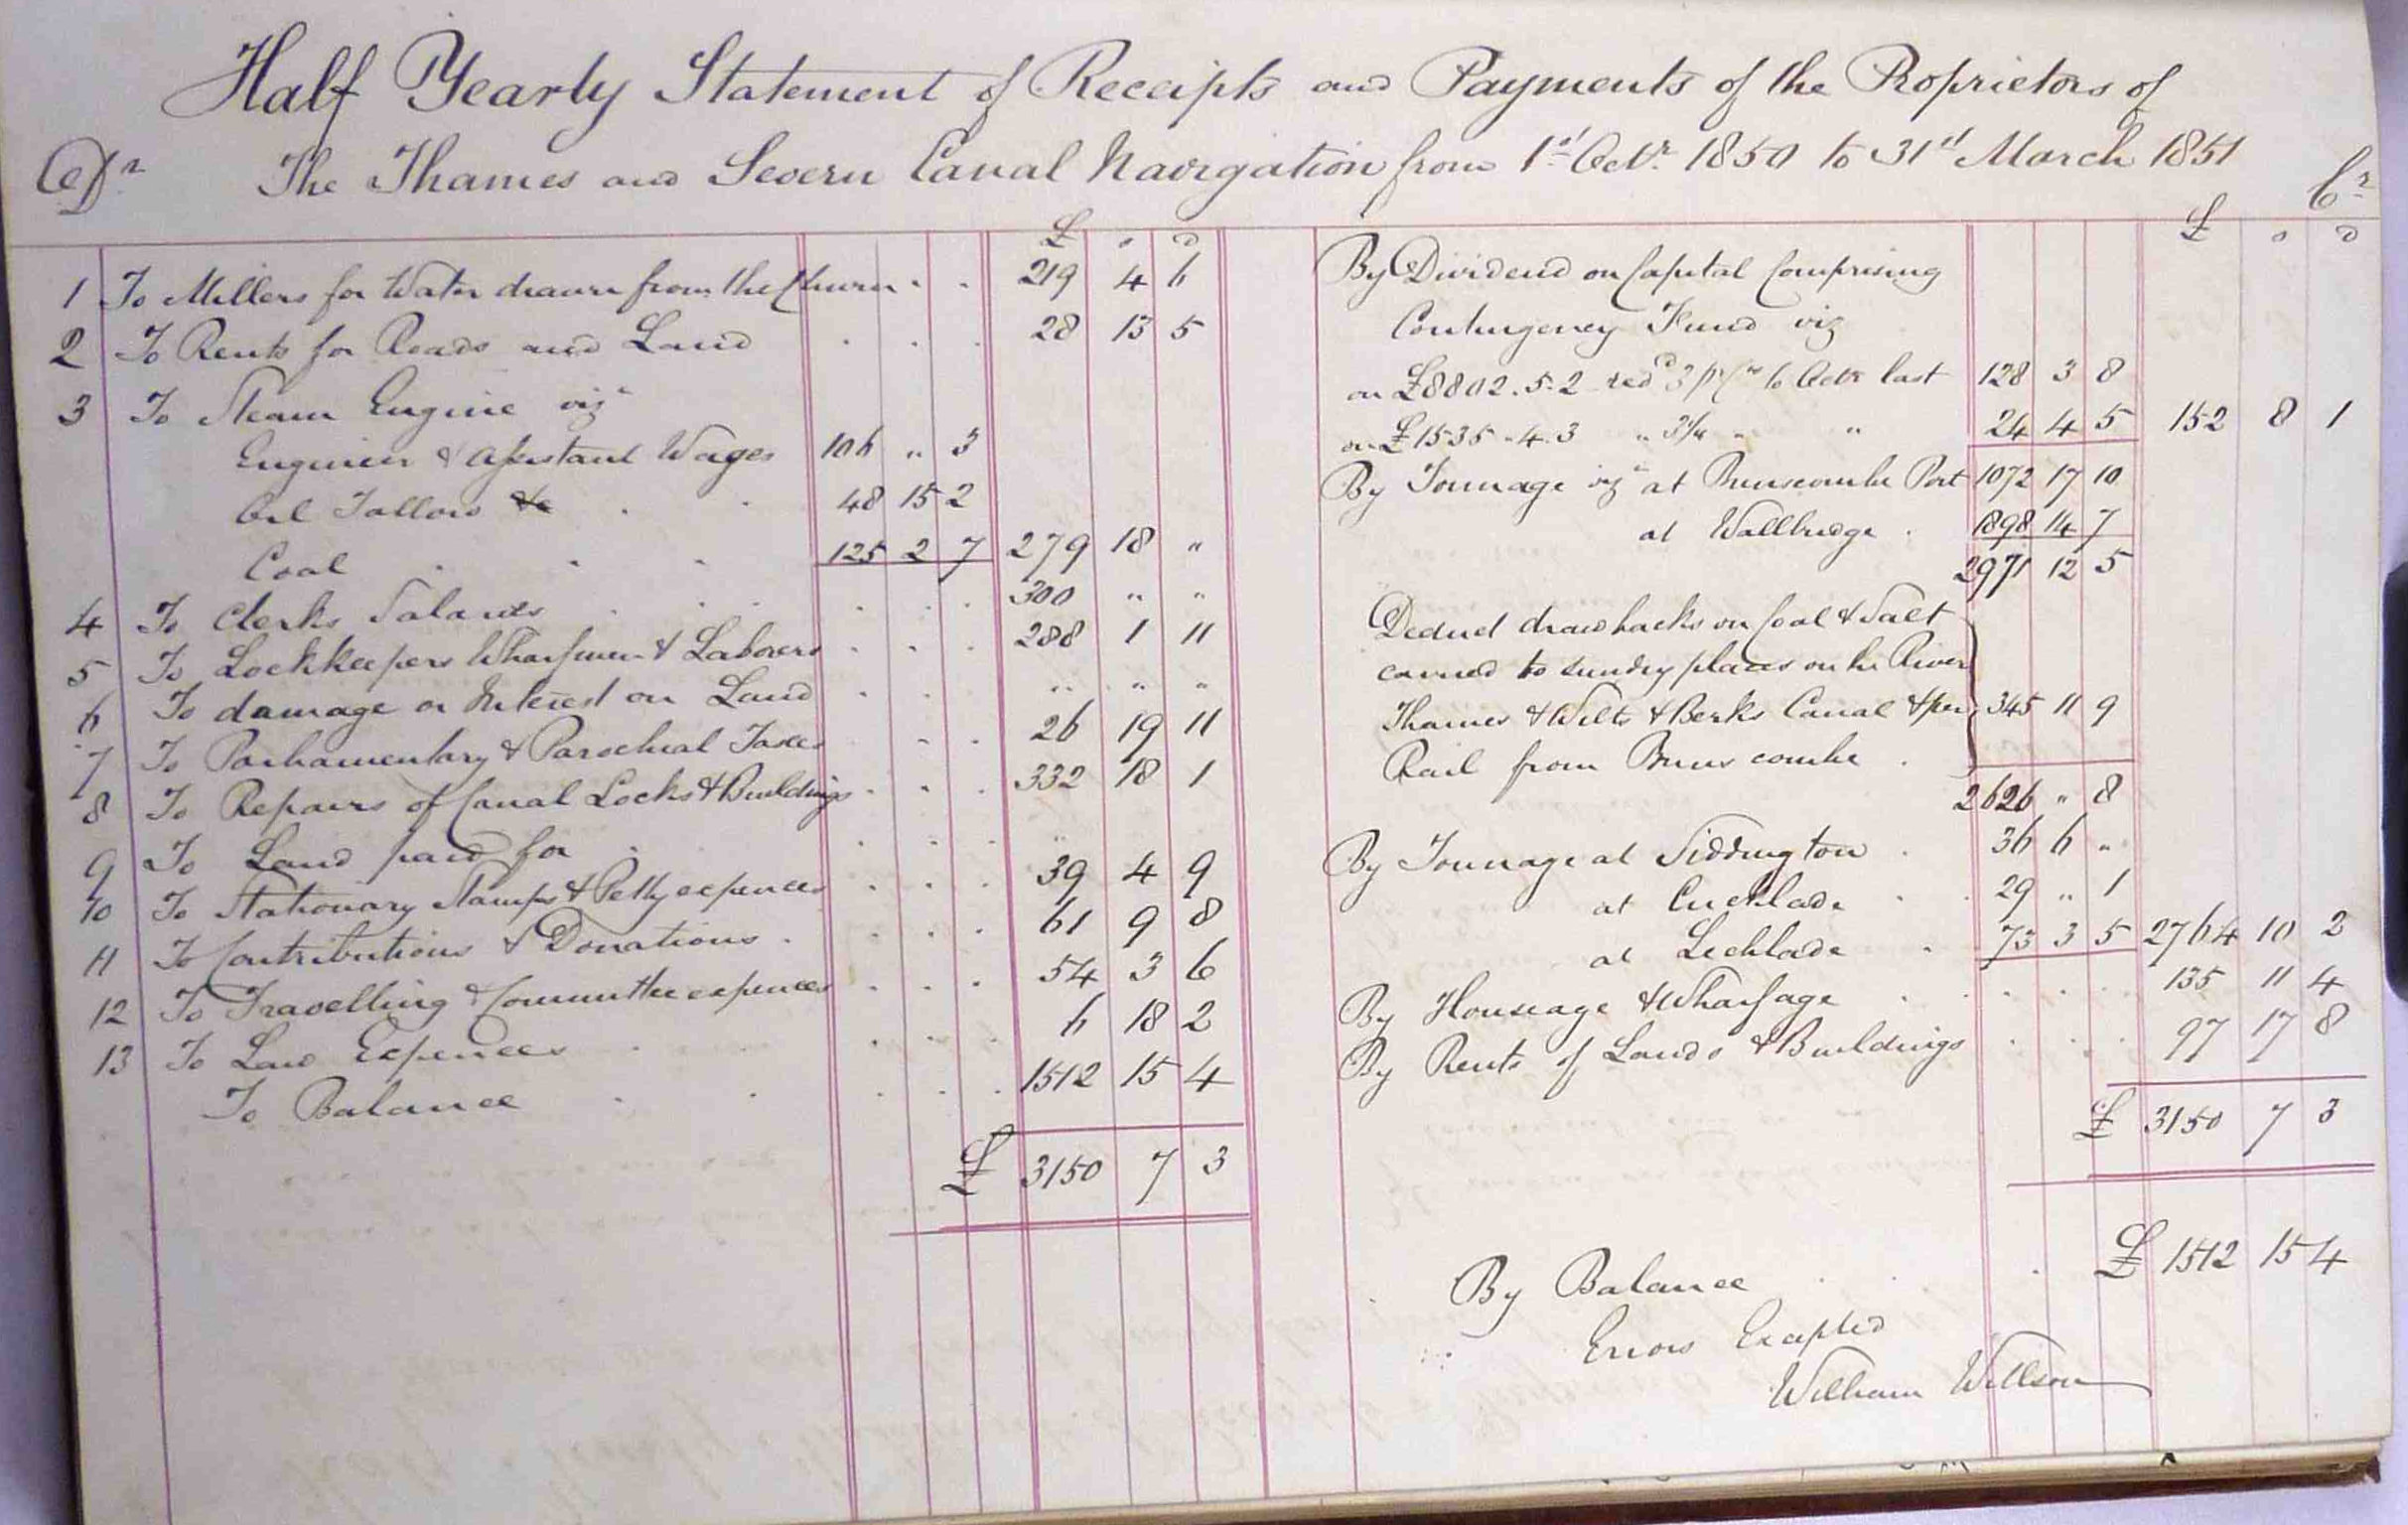 Half Yearly Statement of Receipts and Payments of the Proprietors of
Dr The Thames and Severn Canal Navigation from 1st Octr. 1850 to 31st March 1851 Cr
£ s d
1 To Millers for Water drawn from the Churn . . 219 4 6
2 To Rents for Roads and Land . . . 28 13 5
3 To Steam Engine viz
Engineer & Assistant Wages 106 " 3
Oil Tallow &c . . 48 15 2
Coal . . . 125 2 7 279 18 "
4 To Clerks Salaries . . . 300 " "
5 To Lockkeepers Wharfmen & Laborers . . . 288 1 11
6 To damage or Interest on Land . . " " "
7 To Parliamentary & Parochial Taxes . . . 26 19 11
8 To Repairs of Canal Locks & Buildings . . . 332 18 1
9 To Land paid for . . . "
10 To Stationary Stamps & Petty expences . . . 39 4 9
11 To Contributions & Donations . . . . 61 9 8
12 To Travelling & Committee expences . . . 54 3 6
13 To Law Expences . . . . 6 18 2
To Balance . . . . . 1512 15 4
£ 3150 7 3
£ s d
By Dividend on Capital Comprising
Contingency Fund viz
on £8802.5.2 redd 3 pr Ct to Octr last 128 3 8
on £1535.4.3 " 3¼ " " 24 4 5 152 8 1
By Tonnage viz at Brimscombe Port 1072 17 10
at Wallbridge . 1898 14 7
2971 12 5
Deduct drawbacks on Coal & Salt
carried to sundry places on the River
Thames & Wilts & Berks Canal & per 345 11 9
Rail from Brimscombe .
2626 " 8
By Tonnage at Siddington . 36 6 "
at Cricklade . . 29 " 1
at Lechlade . 73 3 5 2764 10 2
By Houseage & Wharfage . . . . . 135 11 4
By Rents of Lands & Buildings . . . 97 17 8
£ 3150 7 3
By Balance . . . £ 1512 15 4
Errors Excepted
William Willson